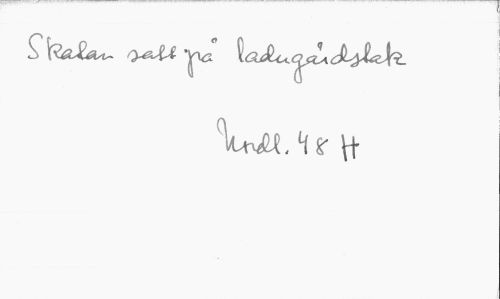 Skatan satt på ladugårdstak
Nordl. 48 H